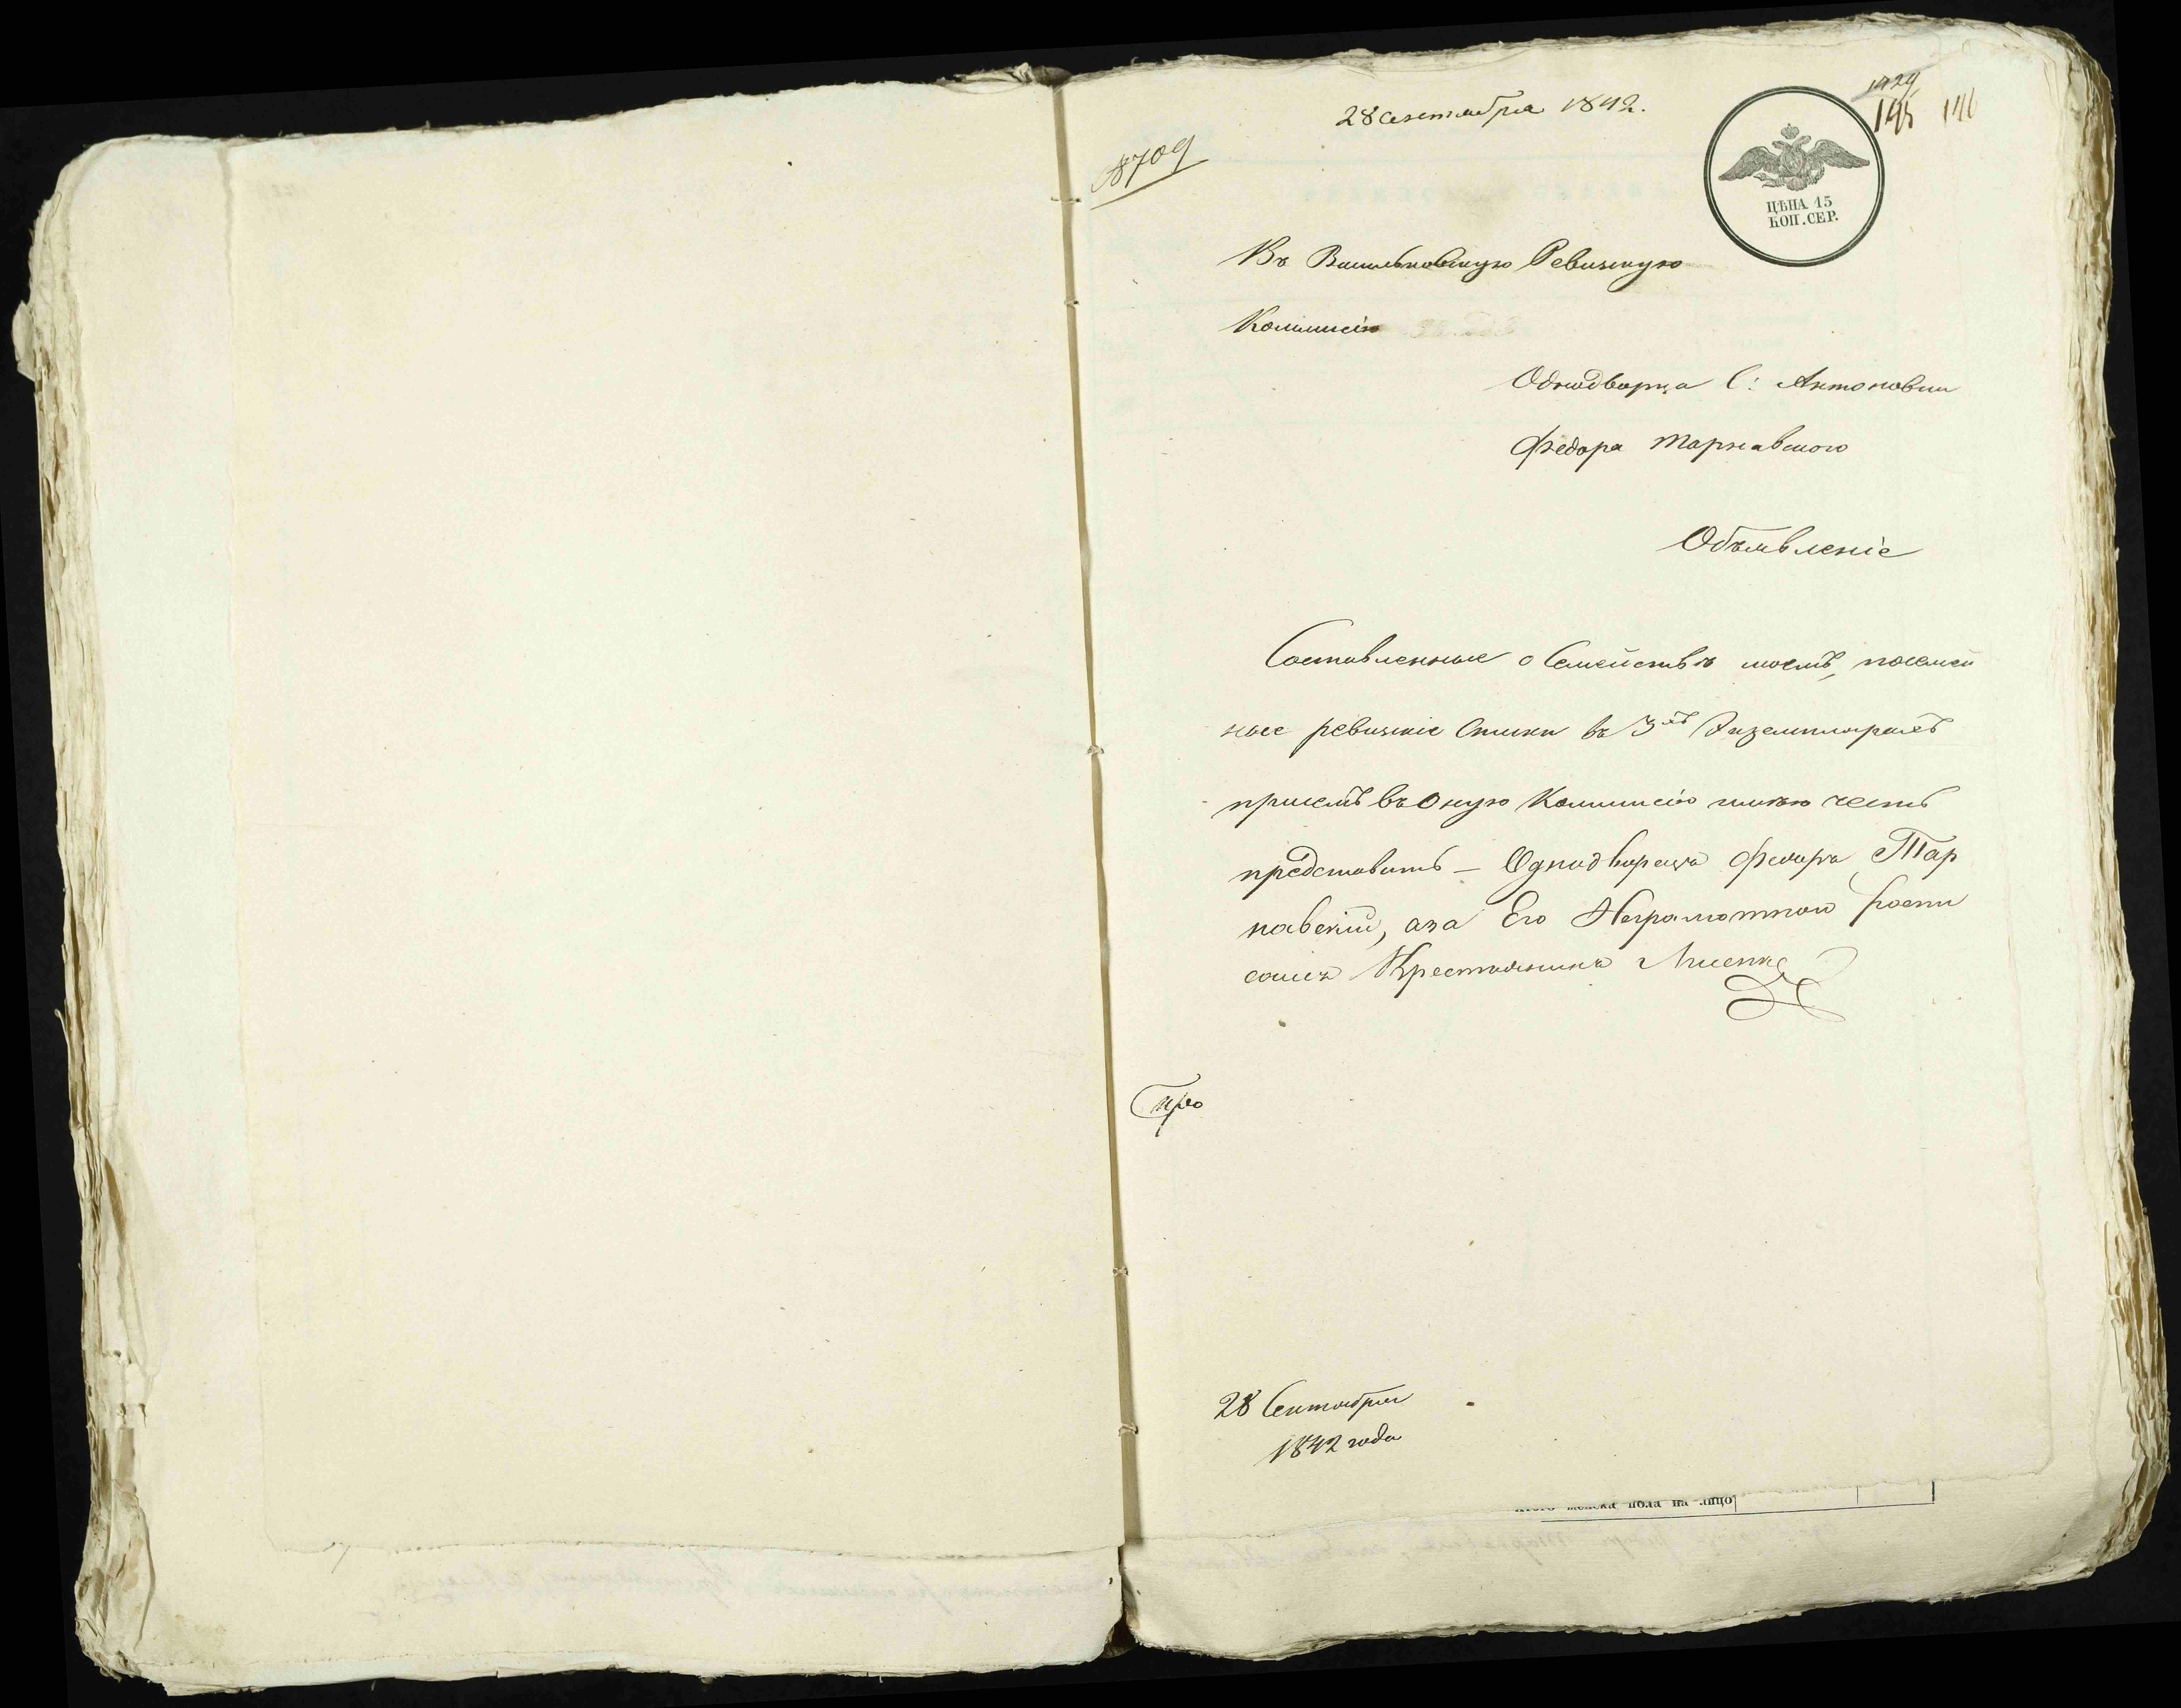 28 Сентября 1842.
8709
1429
145 146
ЦѢНА 15
КОП. СЕР.
Въ Васильковскую Ревизкую
Коммисію
Однодворца С: Антоновки
Федора Тарнавского
Объявленіе
Составленные о Семействѣ моемъ, посемей
ные ревизкіе Списки въ 3хъ Экземплярахъ
при семъ въ Оную Коммисію имѣю честь
представить — Однодворецъ Федоръ Тар
навскій, а за Его Неграмотного роспи
салсь Крестьянинъ
28 Сентября
1842 года
пола на лицо